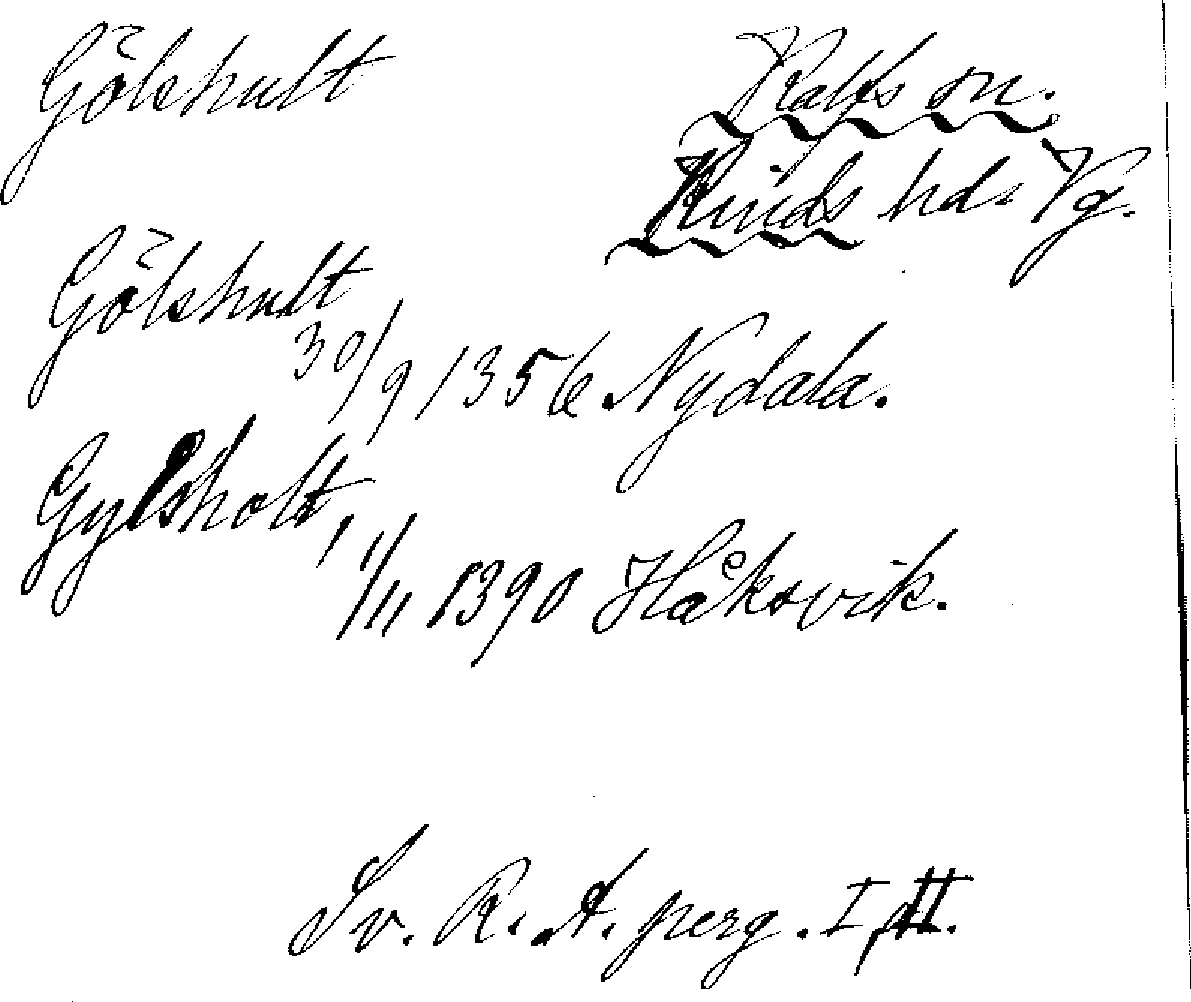 Gölshult
Kalfs sn.
Kinds hd. Vg.
Gölshult
30/9 1356 Nydala.
Gylsholt,
1/11 1390 Håksvik.
Sv. R. A. perg. I, II.